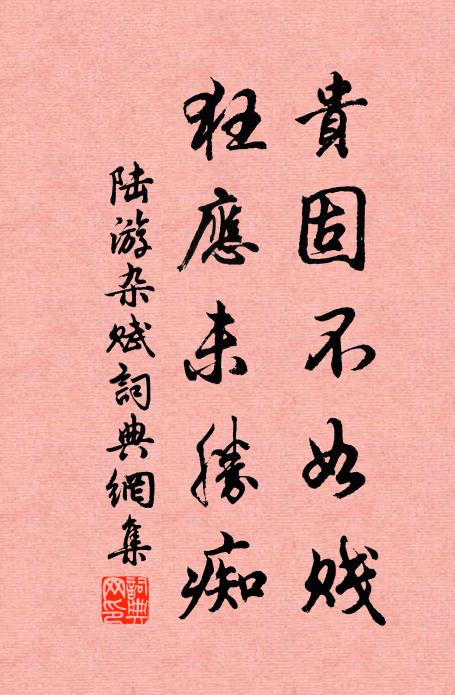 貴固不如贱
狂應未勝痴
陆游杂赋詞典網集
詞典網印